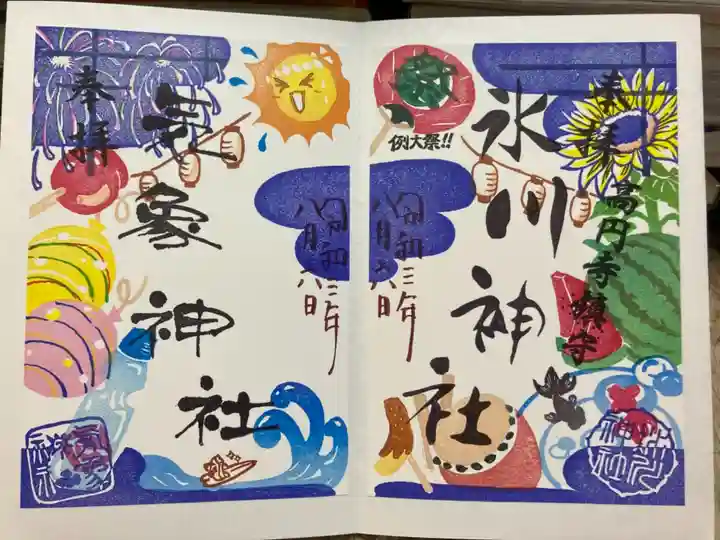 奉拝
高円寺鎮守
氷川神社
例大祭!!
令和三年
八月六日
奉拝
気象神社
令和三年
八月六日